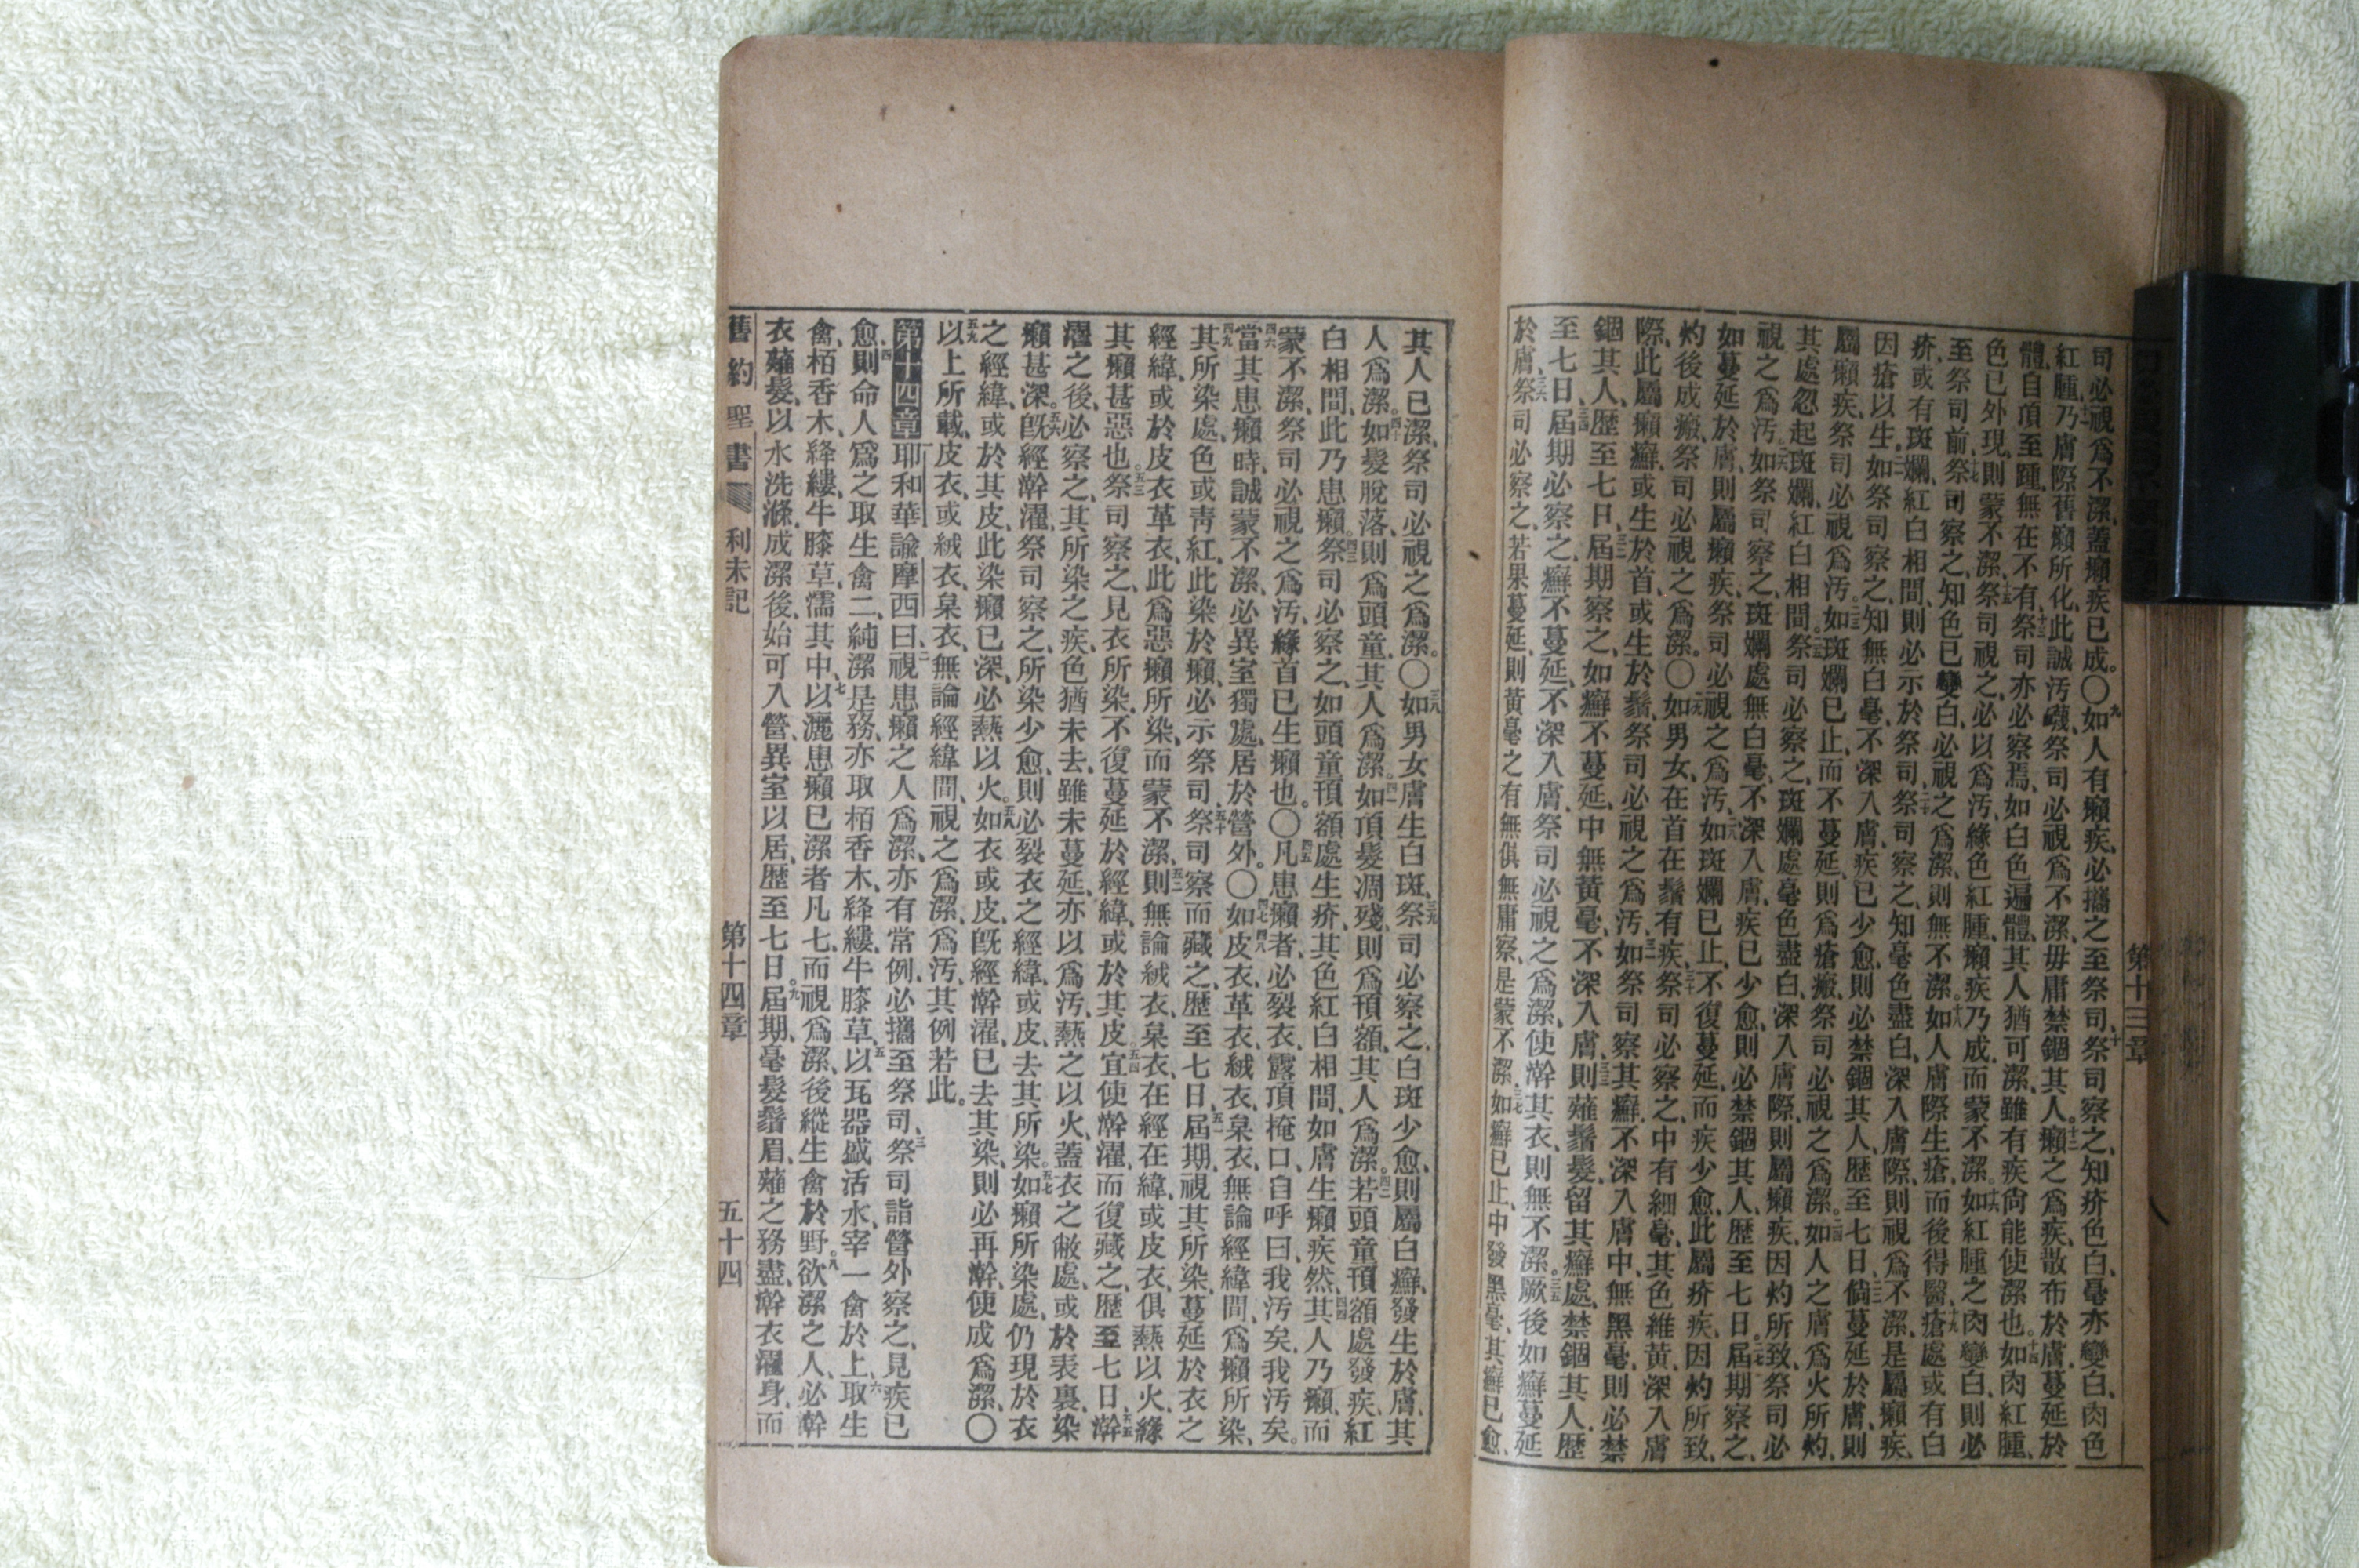 司必視爲不潔、蓋癩疾已成。〇九如人有癩疾、必攜之至祭司、十祭司察之、知疥色白、毫亦變白、肉色
紅腫、十一乃膚際舊癩所化、此誠汚衊、祭司必視爲不潔、毋庸禁錮其人。十二癩之爲疾、散布於膚、蔓延於
體、自頂至踵、無在不有、十三祭司亦必察焉、如白色遍體、其人猶可潔、雖有疾尙能使潔也。十四如肉紅腫、
色已外現、則蒙不潔、十五祭司視之、必以爲汚、緣色紅腫、癩疾乃成、而蒙不潔。十六如紅腫之肉變白、則必
至祭司前、十七祭司察之、知色已變白、必視之爲潔、則無不潔。十八如人膚際生瘡、而後得醫、十九瘡處或有白
疥、或有斑斕、紅白相間、則必示於祭司、二十祭司察之、知毫色盡白、深入膚際、則視爲不潔、是屬癩疾、
因瘡以生、二一如祭司察之、知無白毫、不深入膚、疾已少愈、則必禁錮其人、歷至七日、二二倘蔓延於膚、則
屬癩疾、祭司必視爲汚、二三如斑斕已止、而不蔓延、則爲瘡瘢、祭司必視之爲潔。二四如人之膚爲火所灼、
其處忽起斑斕、紅白相間。二五祭司必察之、斑斕處毫色盡白、深入膚際、則屬癩疾、因灼所致、祭司必
視之爲汚。二六如祭司察之、斑斕處無白毫、不深入膚、疾已少愈、則必禁錮其人、歷至七日。二七屆期察之、
如蔓延於膚、則屬癩疾、祭司必視之爲汚、二八如斑斕已止、不復蔓延、而疾少愈、此屬疥疾、因灼所致、
灼後成瘢、祭司必視之爲潔。〇二九如男女、在首在鬚有疾、三十祭司必察之、中有細毫、其色維黃、深入膚
際、此屬癩癬、或生於首、或生於鬚、祭司必視之爲汚、三一如祭司察其癬、不深入膚、中無黑毫、則必禁
錮其人、歷至七日、三二屆期察之、如癬不蔓延、中無黃毫、不深入膚、三三則薙鬚髮、留其癬處、禁錮其人、歷
至七日、三四屆期必察之、癬不蔓延、不深入膚、祭司必視之爲潔、使澣其衣、則無不潔。三五厥後如癬蔓延
於膚、三六祭司必察之、若果蔓延、則黃毫之有無、俱無庸察、是蒙不潔、三七如癬已止、中發黑毫、其癬已愈、
第十三章
其人已潔、祭司必視之爲潔。〇三八如男女膚生白斑、三九祭司必察之、白斑少愈、則屬白癬、發生於膚、其
人爲潔。四十如髮脫落、則爲頭童、其人爲潔。四一如頂髮凋殘、則爲頇額、其人爲潔。四二若頭童頇額處發疾、紅
白相間、此乃患癩。四三祭司必察之、如頭童頇額處生疥、其色紅白相間、如膚生癩疾然、四四其人乃癩、而
蒙不潔、祭司必視之爲汚、緣首已生癩也。〇四五凡患癩者、必裂衣、露頂、掩口、自呼曰、我汚矣、我汚矣。
四六當其患癩時、誠蒙不潔、必異室獨處、居於營外。〇四七如四八皮衣、革衣、絨衣、枲衣、無論經緯間、爲癩所染、
四九其所染處、色或靑紅、此染於癩、必示祭司、五十祭司察而藏之、歷至七日、五一屆期、視其所染、蔓延於衣之
經緯、或於皮衣革衣、此爲惡癩所染、而蒙不潔、五二則無論絨衣、枲衣、在經在緯、或皮衣、俱爇以火、緣
其癩甚惡也。五三祭司察之、見衣所染、不復蔓延於經緯、或於其皮、五四宜使澣濯、而復藏之、歷至七日、五五澣
濯之後、必察之、其所染之疾、色猶未去、雖未蔓延、亦以爲汚、爇之以火、蓋衣之敝處、或於表裏、染
癩甚深。五六旣經澣濯、祭司察之、所染少愈、則必裂衣之經緯、或皮、去其所染。五七如癩所染處、仍現於衣
之經緯、或於其皮、此染癩已深、必爇以火。五八如衣或皮、旣經澣濯、已去其染、則必再澣、使成爲潔、〇
五九以上所載、皮衣、或絨衣、枲衣、無論經緯間、視之爲潔爲汚、其例若此。
第十四章 耶和華諭摩西曰、二視患癩之人爲潔、亦有常例、必攜至祭司、三祭司詣營外察之、見疾已
愈、四則命人爲之取生禽二、純潔是務、亦取栢香木、絳縷、牛膝草、五以瓦器盛活水、宰一禽於上、六取生
禽、栢香木、絳縷、牛膝草、濡其中、七以灑患癩已潔者凡七、而視爲潔、後縱生禽於野。八欲潔之人、必澣
衣薙髮、以水洗滌、成潔後、始可入營、異室以居、歷至七日。九屆期、毫髮鬚眉、薙之務盡、澣衣濯身、而
舊約聖書 利未記 第十四章 五十四